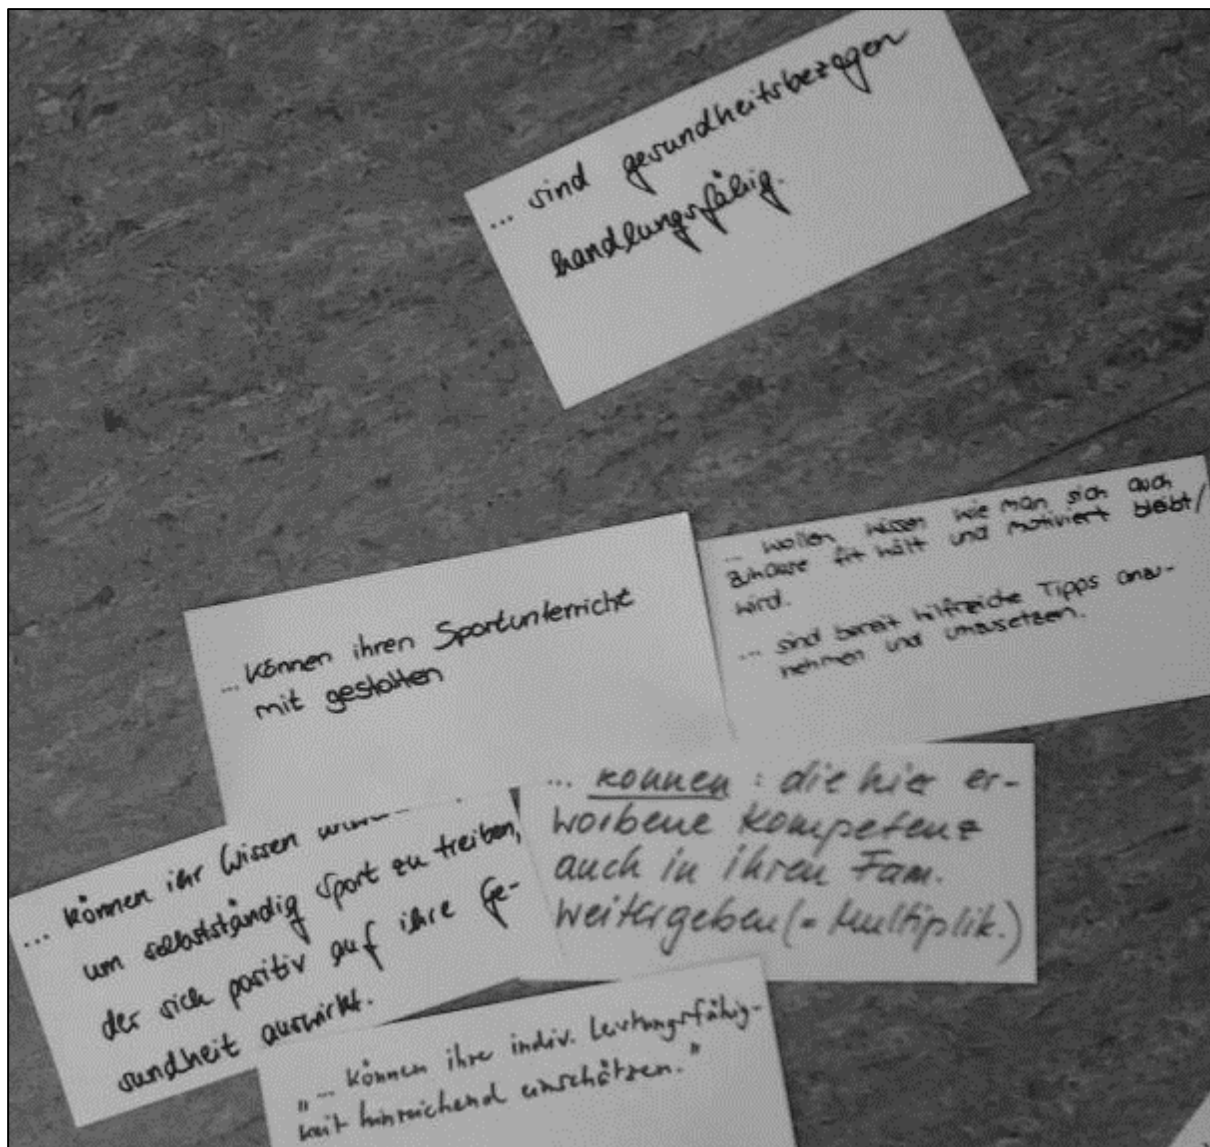 ... sind gesundheitsbezogen
handlungsfähig.
... wollen wissen wie man sich auch
zuhause fit hält und motiviert bleibt/
wird.
... sind bereit hilfreiche Tipps anzu-
nehmen und umzusetzen.
... können ihren Sportunterricht
mit gestalten
... können : die hier er-
worbene Kompetenz
auch in ihren Fam.
weitergeben (= Multiplik.)
... können ihr Wissen
um selbstständig Sport zu treiben,
der sich positiv auf ihre Ge-
sundheit auswirkt.
"... können ihre indiv. Leistungsfähig-
keit hinreichend einschätzen."